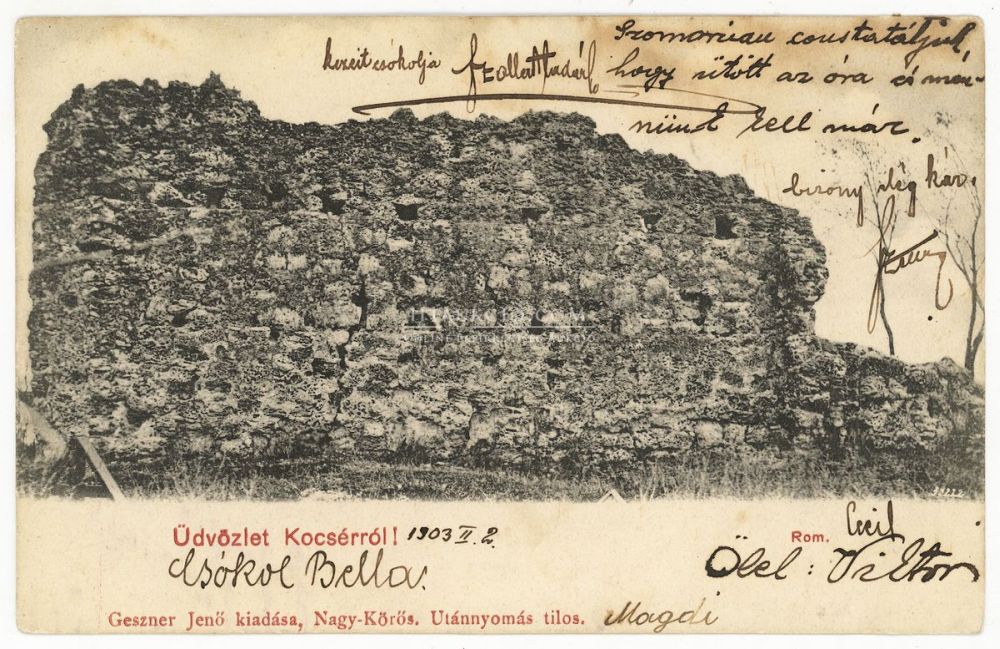 kezeit csókolja
Szomorúan constatáljuk,
hogy ütött az óra és men-
nünk kell már.
bizony elég kár.
Üdvözlet Kocsérról! 1903 II. 2.
Rom.
Cecil
Csókol Bella.
Ölel: Viktor
Geszner Jenő kiadása, Nagy-Körös. Utánnyomás tilos.
Magdi